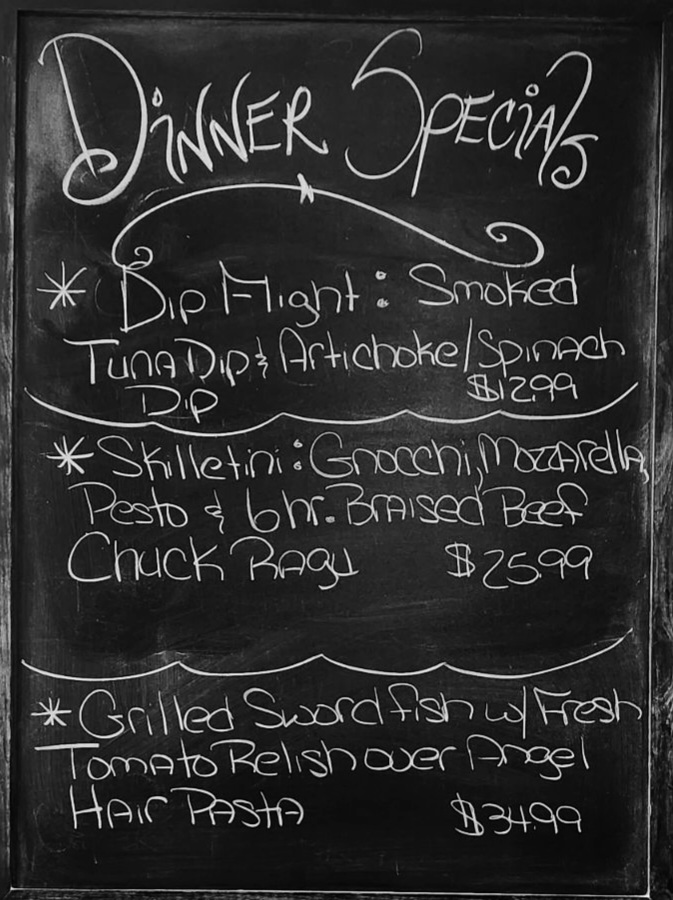 Dinner Specials
* Dip Flight: Smoked
Tuna Dip & Artichoke/Spinach
Dip $12.99
* Skilletini: Gnocchi, Mozzarella,
Pesto & 6hr. Braised Beef
Chuck Ragu $25.99
* Grilled Swordfish w/ Fresh
Tomato Relish over Angel
Hair Pasta $34.99